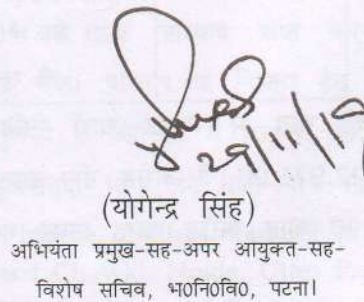 29/11/19
(योगेन्द्र सिंह)
अभियंता प्रमुख-सह-अपर आयुक्त-सह-
विशेष सचिव, भ0नि0वि0, पटना।